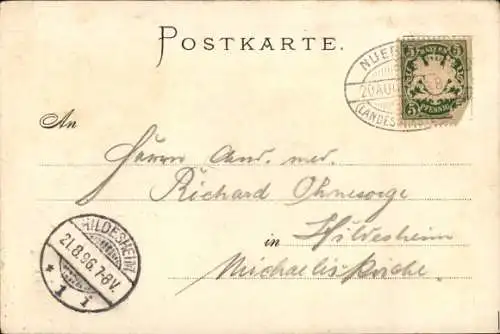 POSTKARTE.
NUE
20 AUG
(LANDES
5 BAYERN 5
5 PFENNIG 5
An
Herrn Cand. med.
Richard Ohnesorge
in Hildesheim
Michaeliskirche.
HILDESHEIM
21.8.96. 7-8V.
* 1 1